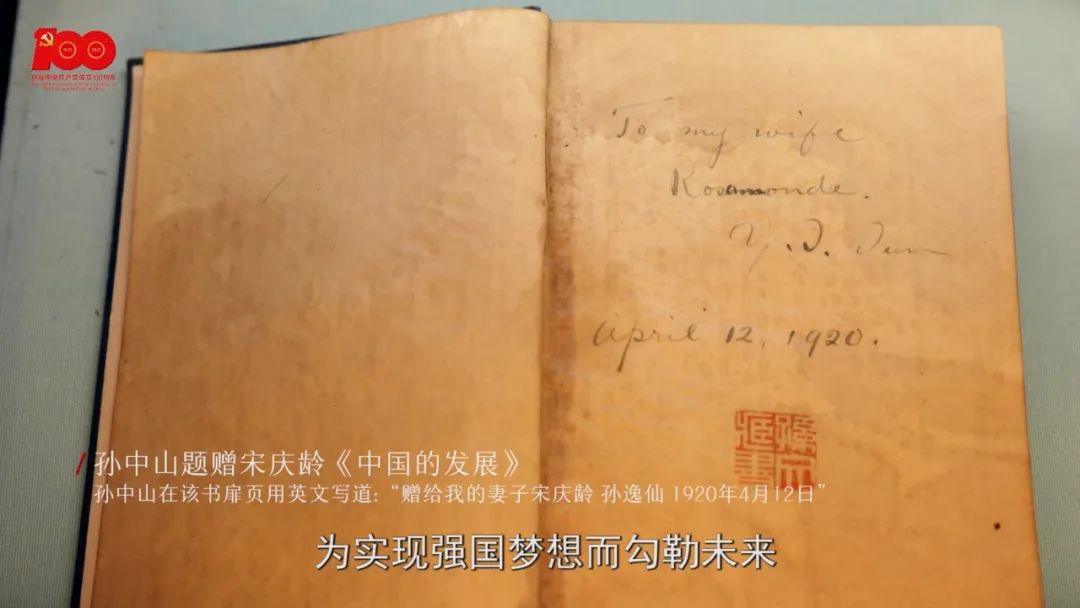 100
1921
2021
庆祝中国共产党成立100周年
To my wife
Rosamonde.
Y. S. Sun
April 12, 1920.
孙中山题赠宋庆龄《中国的发展》
孙中山在该书扉页用英文写道:“赠给我的妻子宋庆龄 孙逸仙 1920年4月12日”
为实现强国梦想而勾勒未来